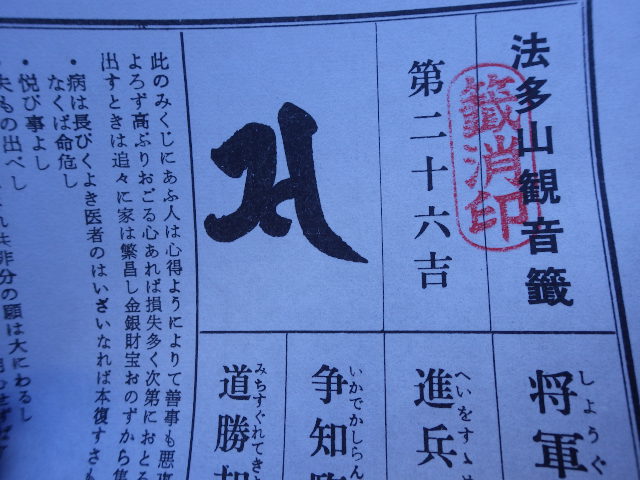 法多山観音籤
籤消印
第二十六吉
将軍
しょうぐ
進兵
へいをすゝめ
争知
いかでかしらん
道勝
みちすぐれてき
此のみくじにあふ人は心得ようによりて善事も悪
よろず高ぶりおごる心あれば損失多く次第におとろ
出すときは追々に家は繁昌し金銀財宝おのずから集
・病は長びくよき医者のはいざいなれば本復すさも
なくば命危し
・悦び事よし
・失もの出べし
非分の願は大にわるし